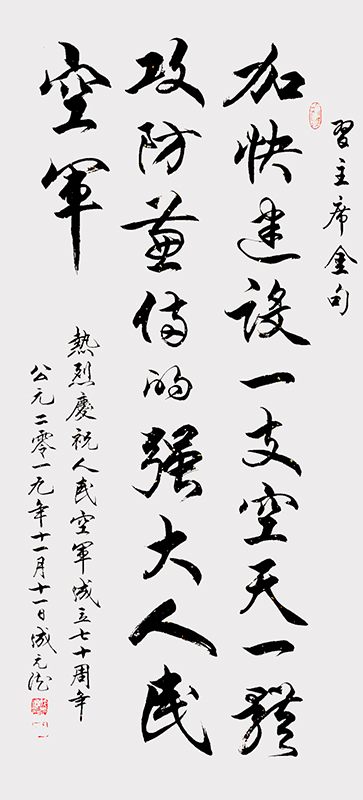 習主席金句
加快建设一支空天一體
攻防兼備的强大人民
空軍
熱烈慶祝人民空軍成立七十周年
公元二零一九年十一月十一日成元